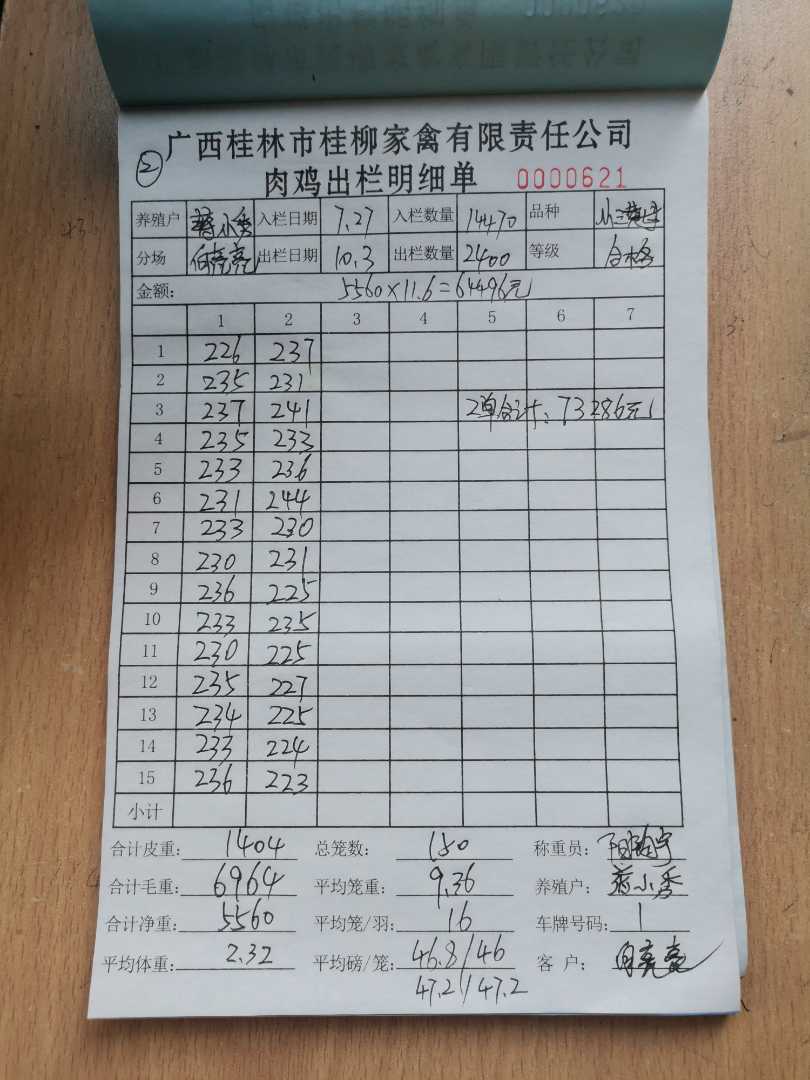 广西桂林市桂柳家禽有限责任公司
② 肉鸡出栏明细单 0000621
养殖户 蒋小秀 入栏日期 7.27 入栏数量 14470 品种
分场 何亮亮 出栏日期 10.3 出栏数量 2400 等级 合格
金额: 5560×11.6=64496元
1 2 3 4 5 6 7
1 226 237
2 235 231
3 237 241 2单合计: 73286元
4 235 233
5 233 236
6 231 244
7 233 230
8 230 231
9 236 225
10 233 235
11 230 225
12 235 227
13 234 225
14 233 224
15 236 223
小计
合计皮重: 1404 总笼数: 150 称重员:
合计毛重: 6964 平均笼重: 9.36 养殖户: 蒋小秀
合计净重: 5560 平均笼/羽: 16 车牌号码: 1
平均体重: 2.32 平均磅/笼: 46.8/46 客户:
47.2/47.2